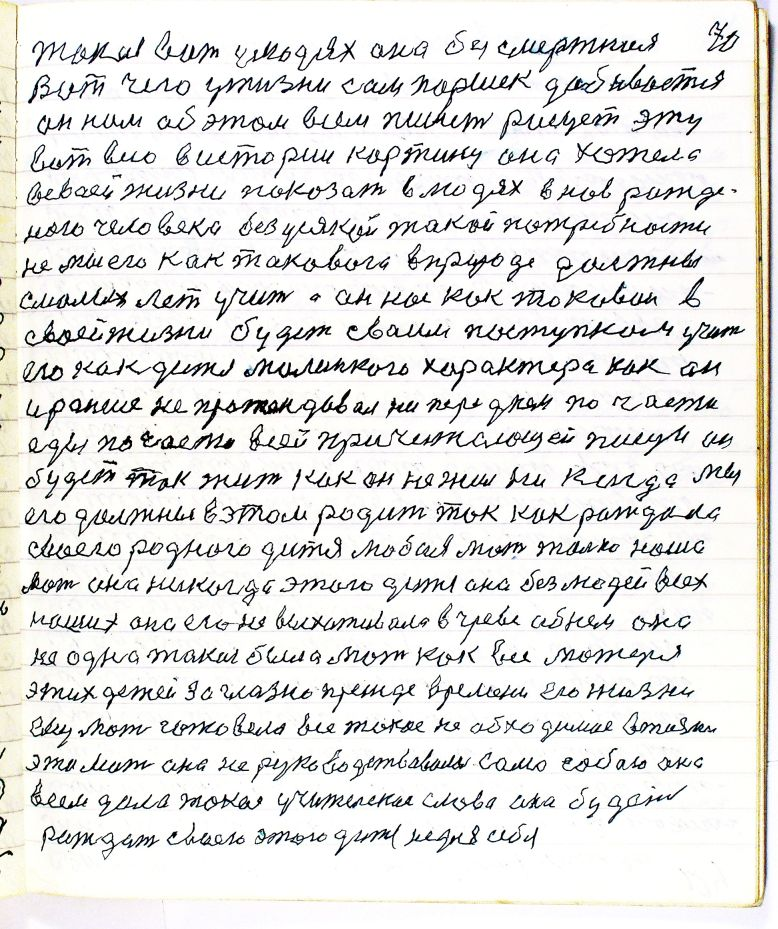 70
такая вот у людях она бессмертная
Вот чего у жизни сам паршек добивается
он нам об этом всем пишет рисует эту
вот вию в истории картину она хотела
в своей жизни показат в людях внов рожде-
ного человека без усякой такой потребности
не мы его как таковога в природе должны
смолых лет учит а он нас как таковой в
своей жизни будет своим поступком учит
его как дитя маленкого характера как он
и раньше не претендовал ни перед кем по части
еды по части всей причентающей пищи он
будет так жит как он не жил ни когда мы
его должны в этом родит так как рождала
своего родного дитя любая мат толко наша
мат она никогда этого дитя она без людей всех
наших она его не выхативала в чреве об нем она
не одна такая была мат как все матеря
этих детей за глазно прежде времени его жизни
ему мат готовела все такое не обходимое в жизни
эта мат она не руководствовалас само собою она
всем дала такое учителское слова она будет
рождат своего этого дитя не для себя